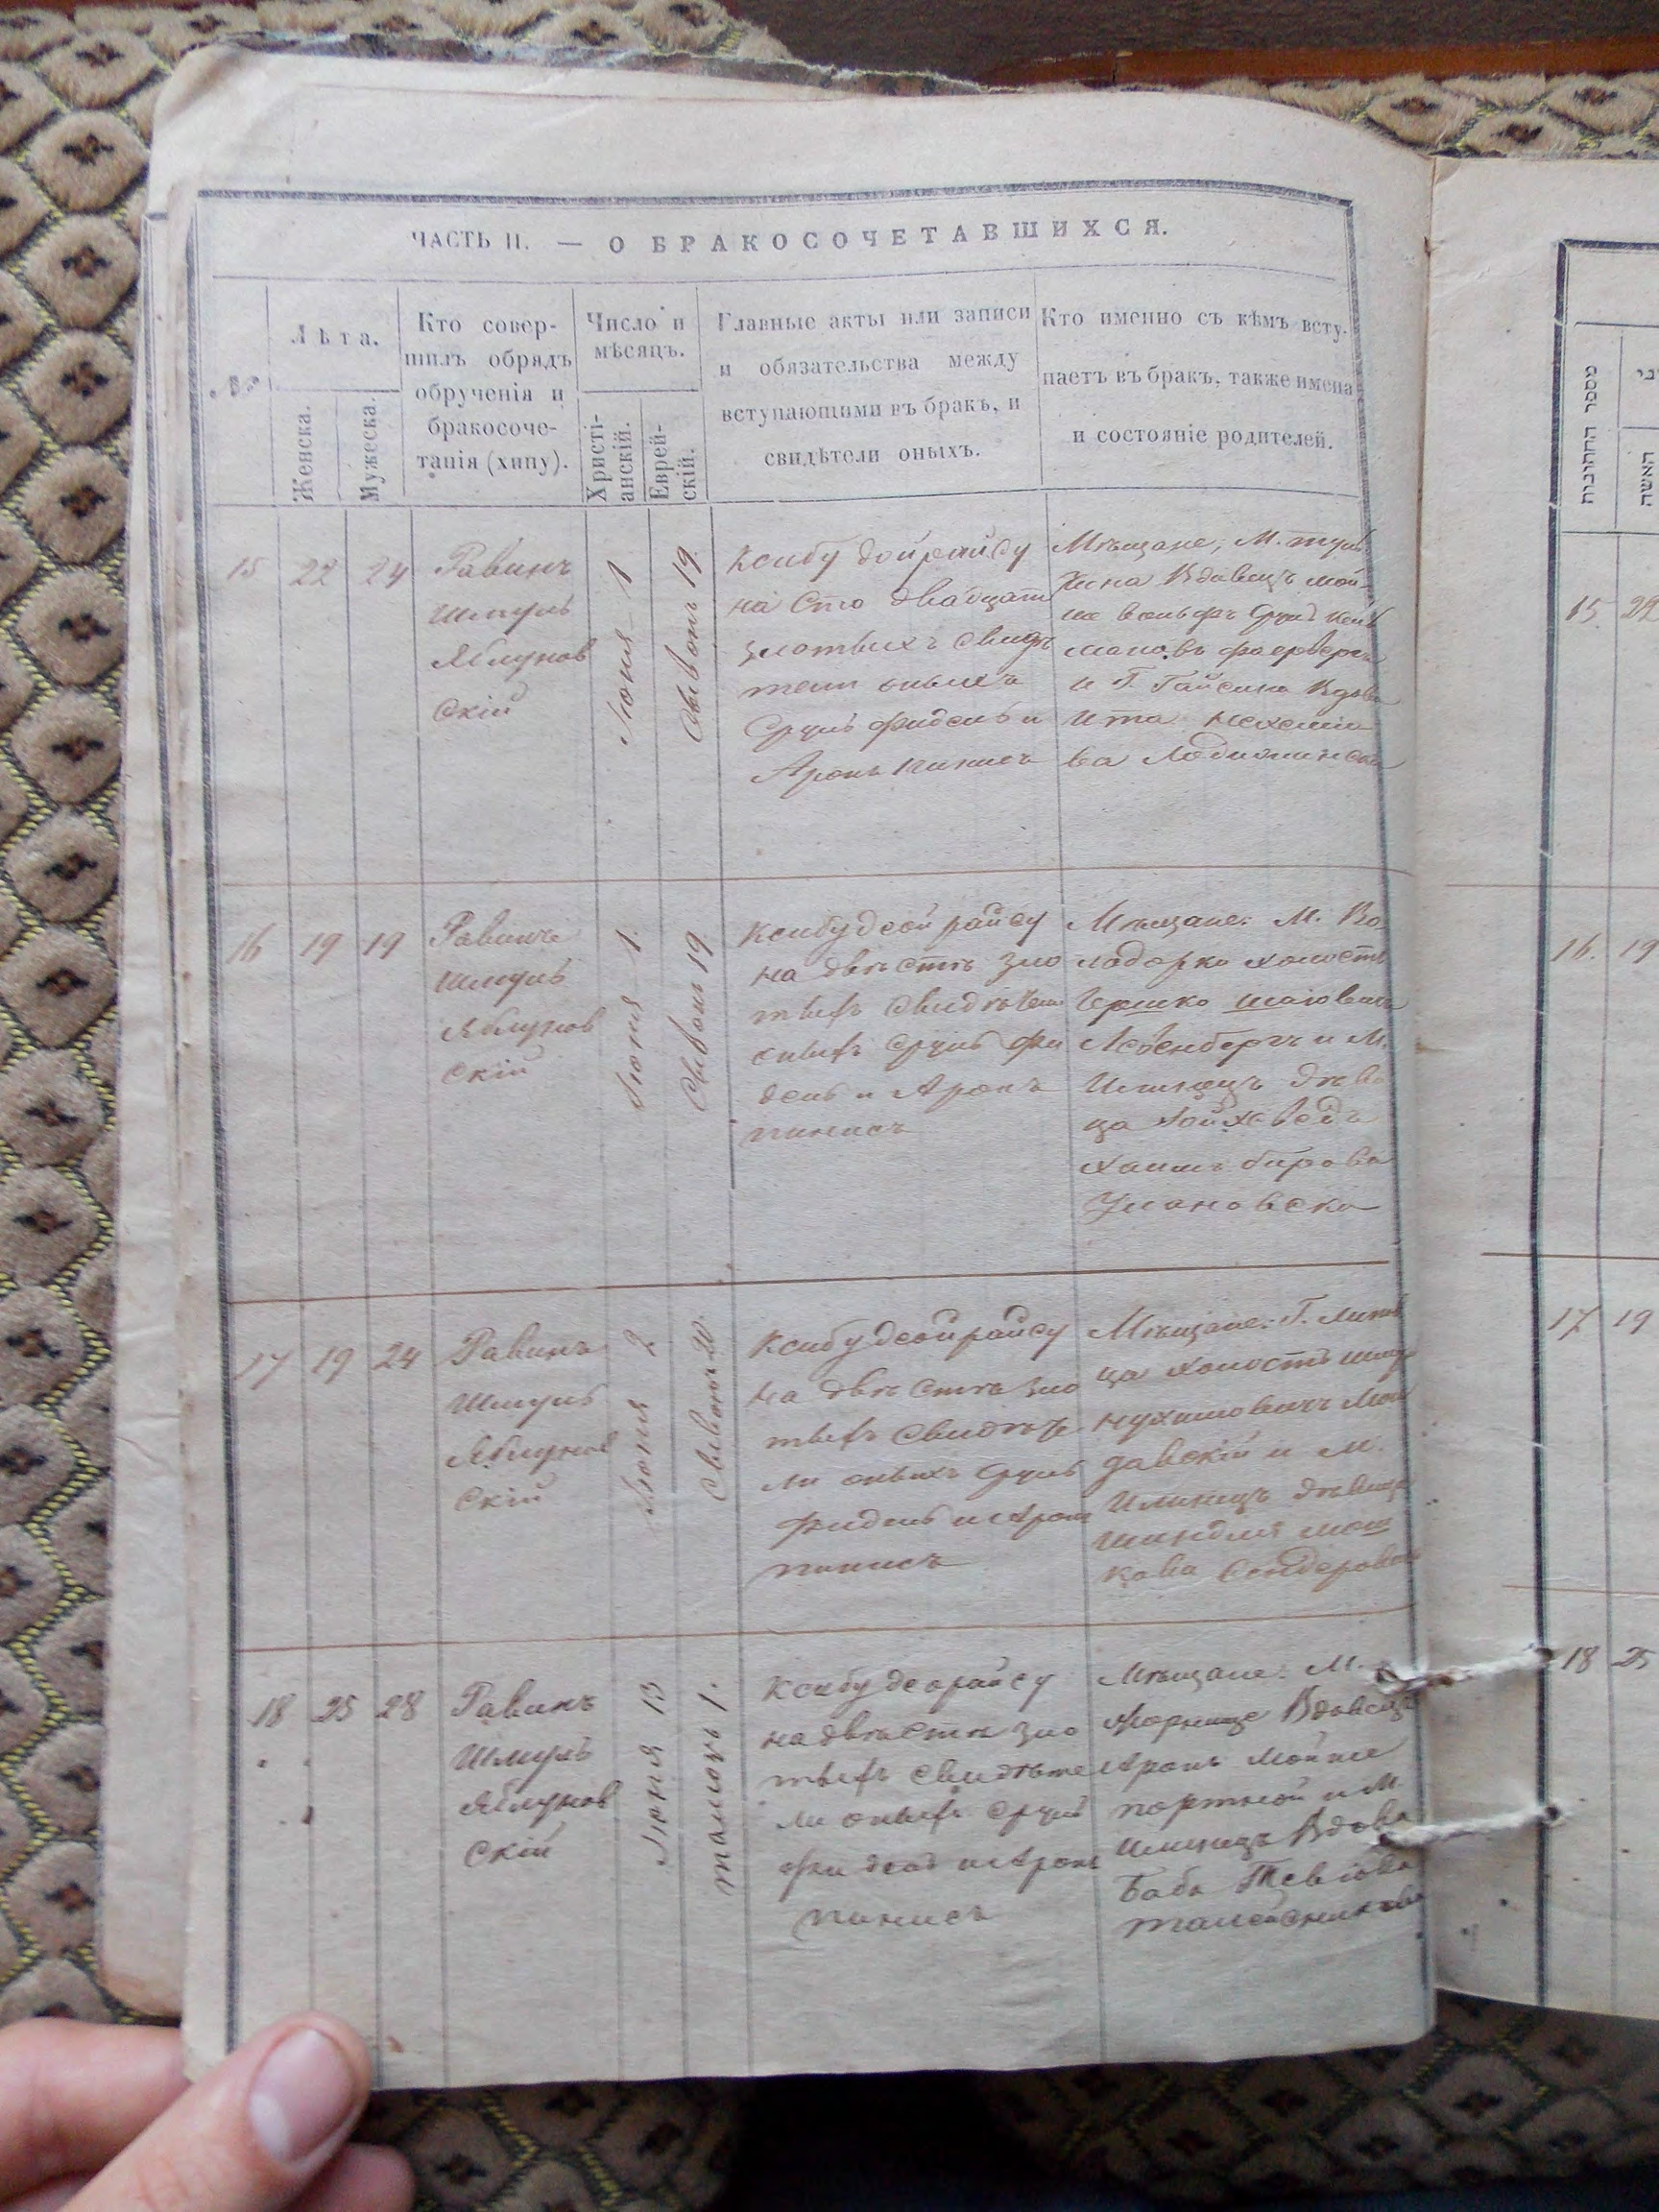 ЧАСТЬ II. — О БРАКОСОЧЕТАВШИХСЯ.
№
Лѣта.
Женска.
Мужеска.
Кто совер-
шилъ обрядъ
обрученія и
бракосоче-
танія (хипу).
Число и
мѣсяцъ.
Христі-
анскій.
Еврей-
скій.
Главные акты или записи
и обязательства между
вступающими въ бракъ, и
свидѣтели оныхъ.
Кто именно съ кѣмъ всту-
паетъ въ бракъ, также имена
и состояніе родителей.
15
22
24
Равинъ
Шмуль
Яблунов
скій
Іюня 1
Сывонъ 19
Ксибу дойрайсу
на сто двадцать
злотыхъ свидѣ
тели оныхъ
Сруль Фидель и
Аронъ Пинисъ
Мѣщане, М.
Вдовецъ Мой
и Г. Гайсина Вдова
Ита
16
19
19
Равинъ
Шмуль
Яблунов
скій
Іюня 1.
Сывонъ 19
Ксибу деой райсу
на двѣстѣ зло
тыхъ свидѣтели
оныхъ Сруль Фи
дель и Аронъ
Пинисъ
Мѣщане: М. Во
ладарка холостъ
Гершко Шаіовичъ
и М.
Илинецъ дѣви
ца Йойхведъ
Хаимъ Берова
Умановска
17
19
24
Равинъ
Шмуль
Яблунов
скій
Іюня 2
Сывонъ 20.
Ксибу деойрайсу
на двѣстѣ зло
тыхъ свидѣте
ли оныхъ Сруль
Фидель и Аронъ
Пинисъ
Мѣщане: Г. Липов
ца холостъ
Нухимовичъ Мол
давскій и М.
Илинецъ дѣвица
Шиндля Мош
кова
18
25
28
Равинъ
Шмуль
Яблунов
скій
Іюня 13
Тамозъ 1.
Ксибу деорайсу
на двѣстѣ зло
тыхъ свидѣте
ли оныхъ Сруль
Фидель и Аронъ
Пинисъ
Мѣщане: М.
Вдовецъ
Аронъ Мойше
портной и М.
Илинецъ Вдова
Баба Тевіова
מספר החתונות
האשה
15
22
16.
19
17
19
18
25